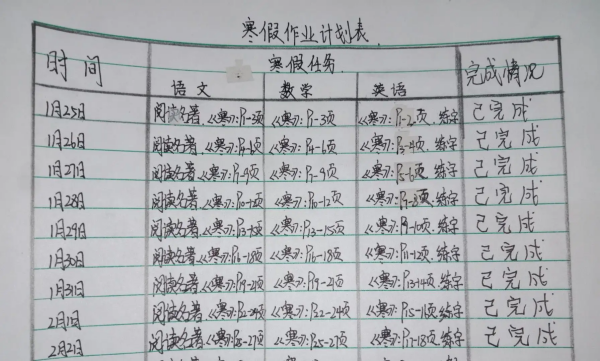 寒假作业计划表
时间 寒假任务 完成情况
语文 数学 英语
1月25日 阅读名著、《寒》:P1-3页 《寒》:P1-3页 《寒》:P1-2页、练字 已完成
1月26日 阅读名著、《寒》:P4-6页 《寒》:P4-6页 《寒》:P3-4页、练字 已完成
1月27日 阅读名著、《寒》:P7-9页 《寒》:P7-9页 《寒》:P5-6页、练字 已完成
1月28日 阅读名著、《寒》:P10-12页 《寒》:P10-12页 《寒》:P7-8页、练字 已完成
1月29日 阅读名著、《寒》:P13-15页 《寒》:P13-15页 《寒》:P9-10页、练字 已完成
1月30日 阅读名著、《寒》:P16-18页 《寒》:P16-18页 《寒》:P11-12页、练字 已完成
1月31日 阅读名著、《寒》:P19-21页 《寒》:P19-21页 《寒》:P13-14页、练字 已完成
2月1日 阅读名著、《寒》:P22-24页 《寒》:P22-24页 《寒》:P15-16页、练字 已完成
2月2日 阅读名著、《寒》:P25-27页 《寒》:P25-27页 《寒》:P17-18页、练字 已完成